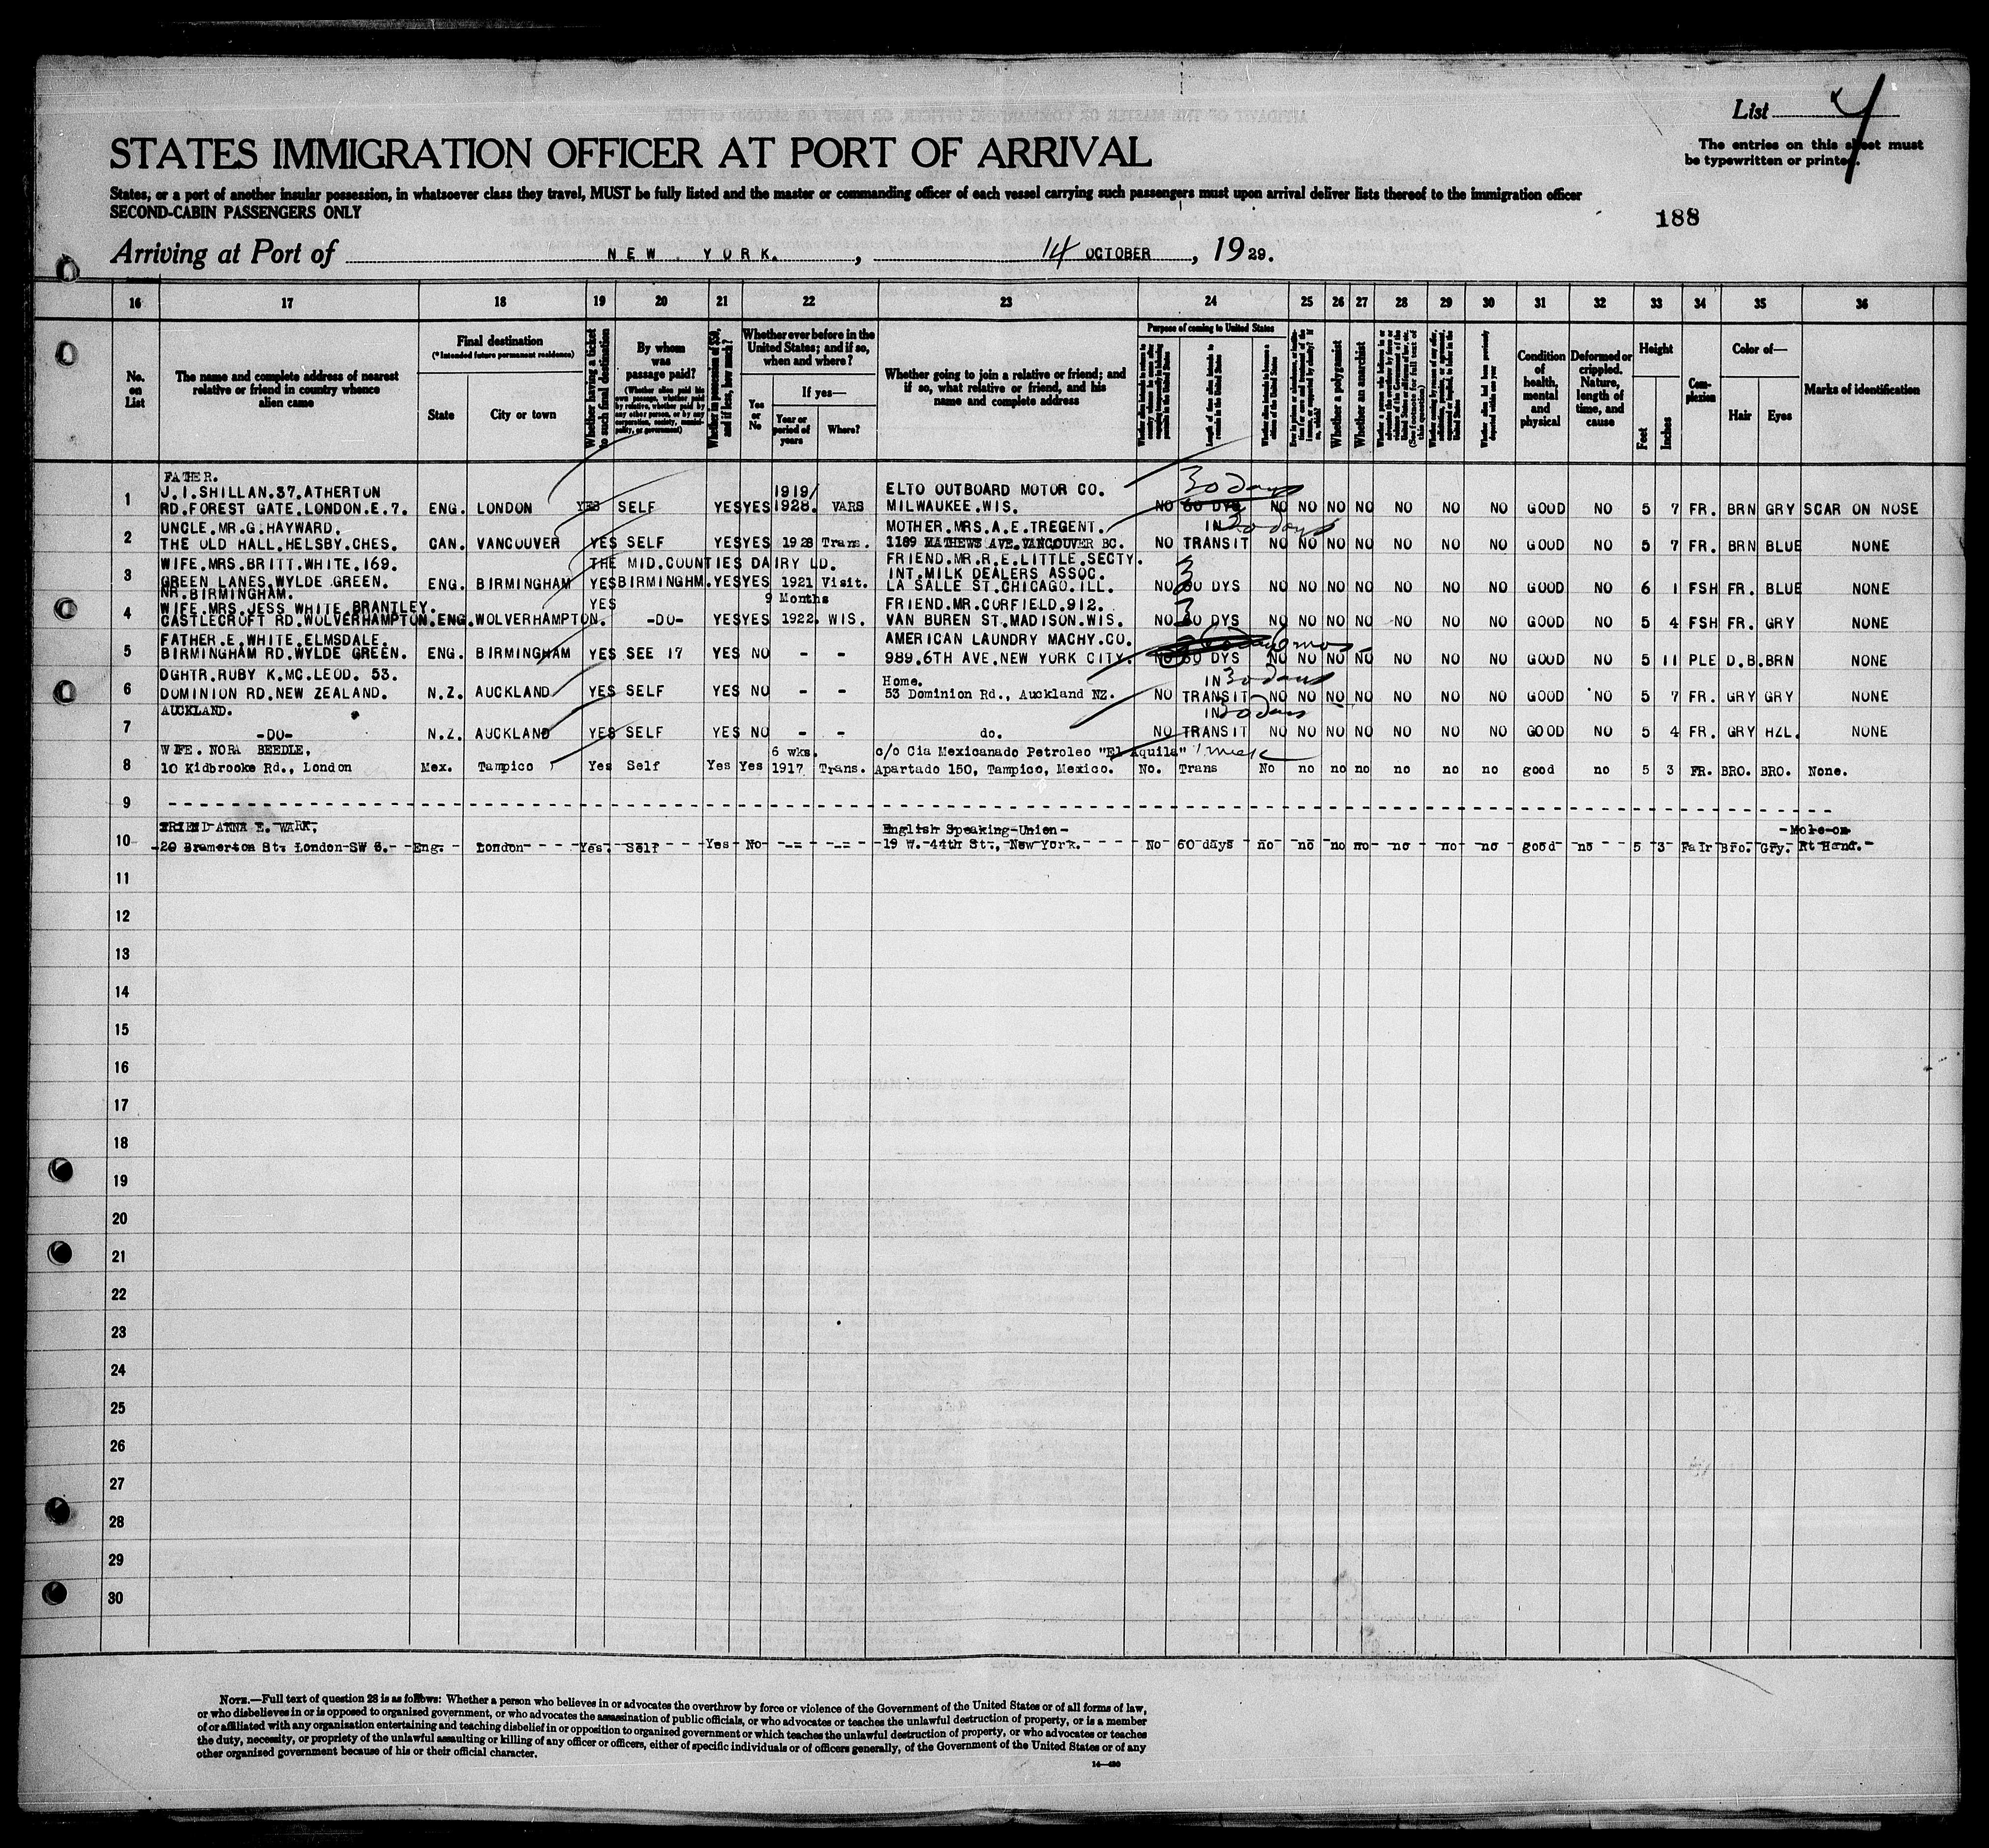 List
The entries on this sheet must
be typewritten or printed.
STATES IMMIGRATION OFFICER AT PORT OF ARRIVAL
States, or a port of another insular possession, in whatsoever class they travel, MUST be fully listed and the master or commanding officer of each vessel carrying such passengers must upon arrival deliver lists thereof to the immigration officer
SECOND-CABIN PASSENGERS ONLY
188
Arriving at Port of NEW YORK. , 14 OCTOBER , 1929.
16 17 18 19 20 21 22 23 24 25 26 27 28 29 30 31 32 33 34 35 36
No. on List
The name and complete address of nearest relative or friend in country whence alien came
Final destination
(*Intended future permanent residence)
State
City or town
Whether having a ticket to such final destination
By whom was passage paid?
(Whether alien paid his own passage, whether paid by relative, whether paid by any other person, or by any corporation, society, municipality, or government)
Whether in possession of $50, and if less, how much?
Whether ever before in the United States; and if so, when and where?
Yes or No
If yes—
Year or period of years
Where?
Whether going to join a relative or friend; and if so, what relative or friend, and his name and complete address
Purpose of coming to United States
Length of time alien intends to remain in the United States
Whether alien intends to become a citizen of the United States
Whether a polygamist
Whether an anarchist
Whether alien had been previously deported within one year
Condition of health, mental and physical
Deformed or crippled. Nature, length of time, and cause
Height
Feet
Inches
Complexion
Color of—
Hair
Eyes
Marks of identification
FATHER.
1 J.I.SHILLAN.37.ATHERTON 1919/ ELTO OUTBOARD MOTOR CO. 30 days
RD.FOREST GATE.LONDON.E.7. ENG. LONDON YES SELF YES YES 1928. VARS MILWAUKEE.WIS. NO 60 DYS NO NO NO NO NO NO NO GOOD NO 5 7 FR. BRN GRY SCAR ON NOSE
UNCLE.MR.G.HAYWARD. MOTHER.MRS.A.E.TREGENT. IN 30 days
2 THE OLD HALL.HELSBY.CHES. CAN. VANCOUVER YES SELF YES YES 1928 Trans. 1189 MATHEWS AVE.VANCOUVER BC. NO TRANSIT NO NO NO NO NO NO NO GOOD NO 5 7 FR. BRN BLUE NONE
WIFE.MRS.BRITT.WHITE.169. THE MID.COUNTIES DAIRY LD. FRIEND.MR.R.E.LITTLE.SECTY. INT.MILK DEALERS ASSOC.
3 GREEN LANES.WYLDE GREEN. ENG. BIRMINGHAM YES BIRMINGHM. YES YES 1921 Visit. LA SALLE ST.CHICAGO.ILL. NO 60 DYS NO NO NO NO NO NO NO GOOD NO 6 1 FSH FR. BLUE NONE
NR.BIRMINGHAM. 9 Months
WIFE.MRS.JESS WHITE.BRANTLEY. YES FRIEND.MR.CORFIELD.912.
4 CASTLECROFT RD.WOLVERHAMPTON. ENG. WOLVERHAMPTON. -DO- YES YES 1922. WIS. VAN BUREN ST.MADISON.WIS. NO 60 DYS NO NO NO NO NO NO NO GOOD NO 5 4 FSH FR. GRY NONE
FATHER.E.WHITE.ELMSDALE. AMERICAN LAUNDRY MACHY.CO. 6 mos
5 BIRMINGHAM RD.WYLDE GREEN. ENG. BIRMINGHAM YES SEE 17 YES NO - - 989.6TH AVE.NEW YORK CITY. NO 60 DYS NO NO NO NO NO NO NO GOOD NO 5 11 PLE D.B. BRN NONE
DGHTR.RUBY K.MC.LEOD. 53. Home. IN 30 days
6 DOMINION RD.NEW ZEALAND. N.Z. AUCKLAND YES SELF YES NO - - 53 Dominion Rd., Auckland NZ. NO TRANSIT NO NO NO NO NO NO NO GOOD NO 5 7 FR. GRY GRY NONE
AUCKLAND. IN 30 days
7 -DO- N.Z. AUCKLAND YES SELF YES NO - - do. NO TRANSIT NO NO NO NO NO NO NO GOOD NO 5 4 FR. GRY HZL. NONE
WIFE. NORA BEEDLE, 6 wks. c/o Cia Mexicanado Petroleo "El Aquila" 1 week
8 10 Kidbrooke Rd., London Mex. Tampico Yes Self Yes Yes 1917 Trans. Apartado 150, Tampico, Mexico. No. Trans No no no no no no no good no 5 3 FR. BRO. BRO. None.
9
FRIEND ANNA E. WARK, English Speaking-Union- -Mole-on
10 20 Bramerton St. London-SW 3. Eng. London Yes. Self Yes No -.- -.- 19 W.-44th St., New York. No 60 days no no no no no no no good no 5 3 Fair Bro. Gry. Rt Hand.-
11
12
13
14
15
16
17
18
19
20
21
22
23
24
25
26
27
28
29
30
NOTE.—Full text of question 28 is as follows: Whether a person who believes in or advocates the overthrow by force or violence of the Government of the United States or of all forms of law,
or who disbelieves in or is opposed to organized government, or who advocates the assassination of public officials, or who advocates or teaches the unlawful destruction of property, or is a member
of or affiliated with any organization entertaining and teaching disbelief in or opposition to organized government or which teaches the unlawful destruction of property, or who advocates or teaches
the duty, necessity, or propriety of the unlawful assaulting or killing of any officer or officers, either of specific individuals or of officers generally, of the Government of the United States or of any
other organized government because of his or their official character.